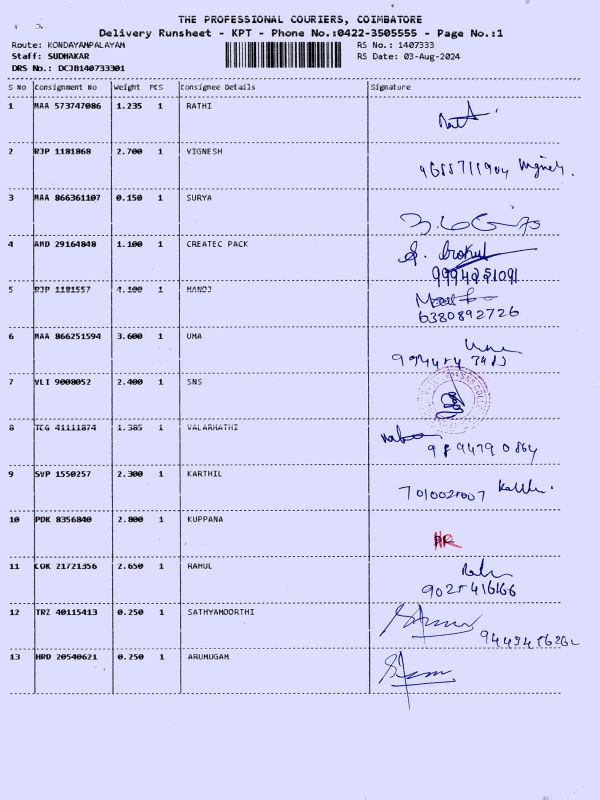 THE PROFESSIONAL COURIERS, COIMBATORE
Delivery Runsheet - KPT - Phone No.:0422-3505555 - Page No.:1
Route: KONDAYAMPALAYAM RS No.: 1407333
Staff: SUDHAKAR RS Date: 03-Aug-2024
DRS No.: DCJB140733301
S No Consignment No Weight PCS Consignee Details Signature
1 MAA 573747086 1.235 1 RATHI
2 RJP 1181868 2.700 1 VIGNESH
9655711904 Vignesh.
3 MAA 866361107 0.150 1 SURYA
4 AMD 29164848 1.100 1 CREATEC PACK
9994251091
5 RJP 1181557 4.100 1 MANOJ
6380892726
6 MAA 866251594 3.600 1 UMA
Uma
7 VLI 9008052 2.400 1 SNS
8 TCG 41111874 1.385 1 VALARMATHI
9 SVP 1550257 2.300 1 KARTHIL
7010025007
10 PDK 8356840 2.800 1 KUPPANA
11 COK 21721356 2.650 1 RAHUL
9025416166
12 TRZ 40115413 0.250 1 SATHYAMOORTHI
13 HRD 20540621 0.250 1 ARUMUGAM